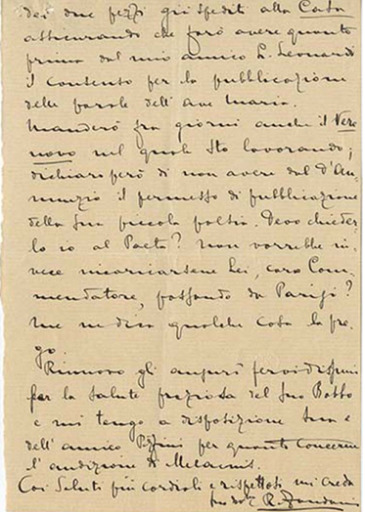 dei due pezzi già spediti alla Casa
assicurando che farò avere quanto
prima dal mio amico L. Leonardi
il consenso per la pubblicazione
delle parole dell'Ave Maria.
Manderò fra giorni anche il Vere
novo nel quale sto lavorando;
dichiaro però di non avere dal D'An-
nunzio il permesso di pubblicazione
della sua piccola poesia. Devo chieder-
lo io al Poeta? non vorrebbe in-
vece incaricarsene Lei, caro Com-
mendatore, passando da Parigi?
me ne dica qualche cosa la pre-
go.
Rinnovo gli auguri fervidissimi
per la salute preziosa del suo
e mi tengo a disposizione sua e
dell'amico Pizzini per quanto concerne
l'audizione di Melaenis.
Coi saluti più cordiali e rispettosi mi creda
suo dev. R. Zandonai